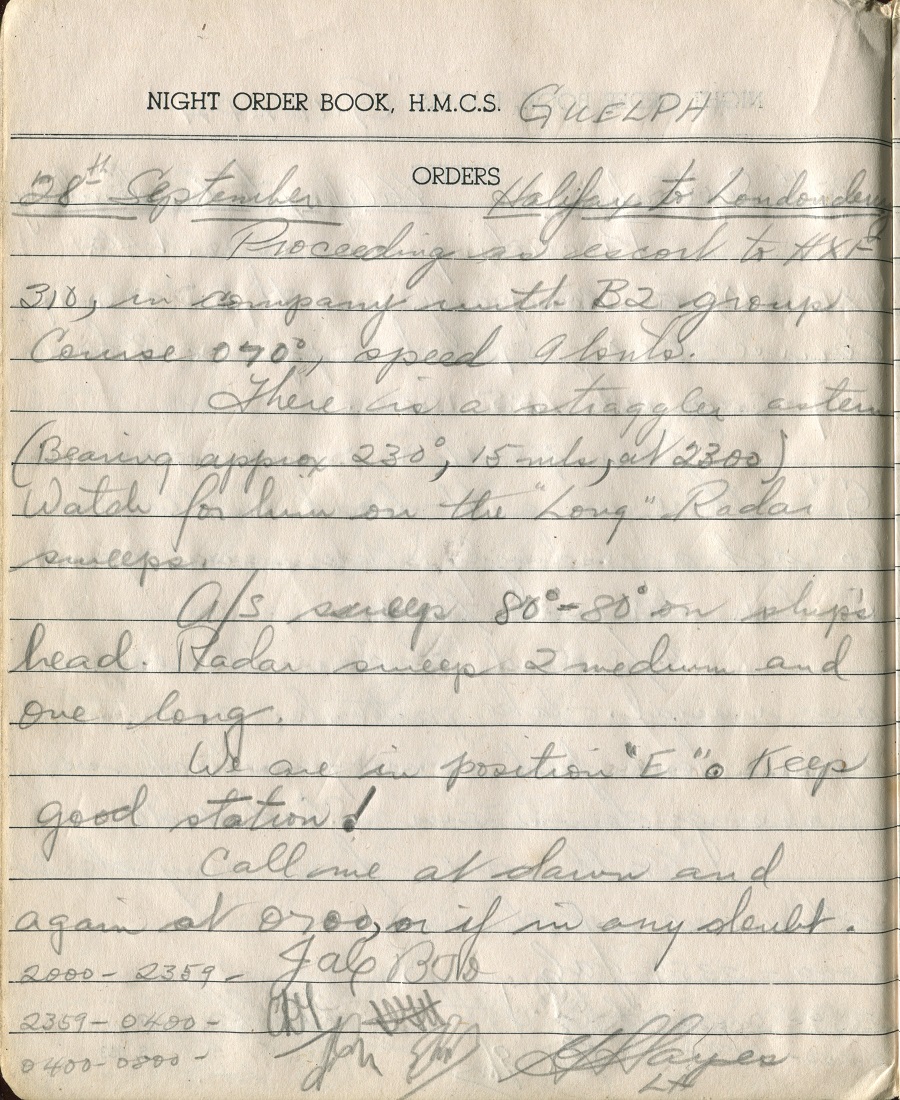 NIGHT ORDER BOOK, H.M.C.S. GUELPH
ORDERS
28th September Halifax to Londonderry
Proceeding as escort to HXF
310, in company with B2 group
Course 070°, speed 9 knots.
There is a straggler astern
(Bearing approx 230°, 15 mls, at 2300)
Watch for him on the "Long" Radar
sweeps.
A/S sweep 80°-80° on ship's
head. Radar sweep 2 medium and
one long.
We are in position "E". Keep
good station!
Call me at dawn and
again at 0700, or if in any doubt.
2000-2359-
2359-0400-
0400-0800- Hayes